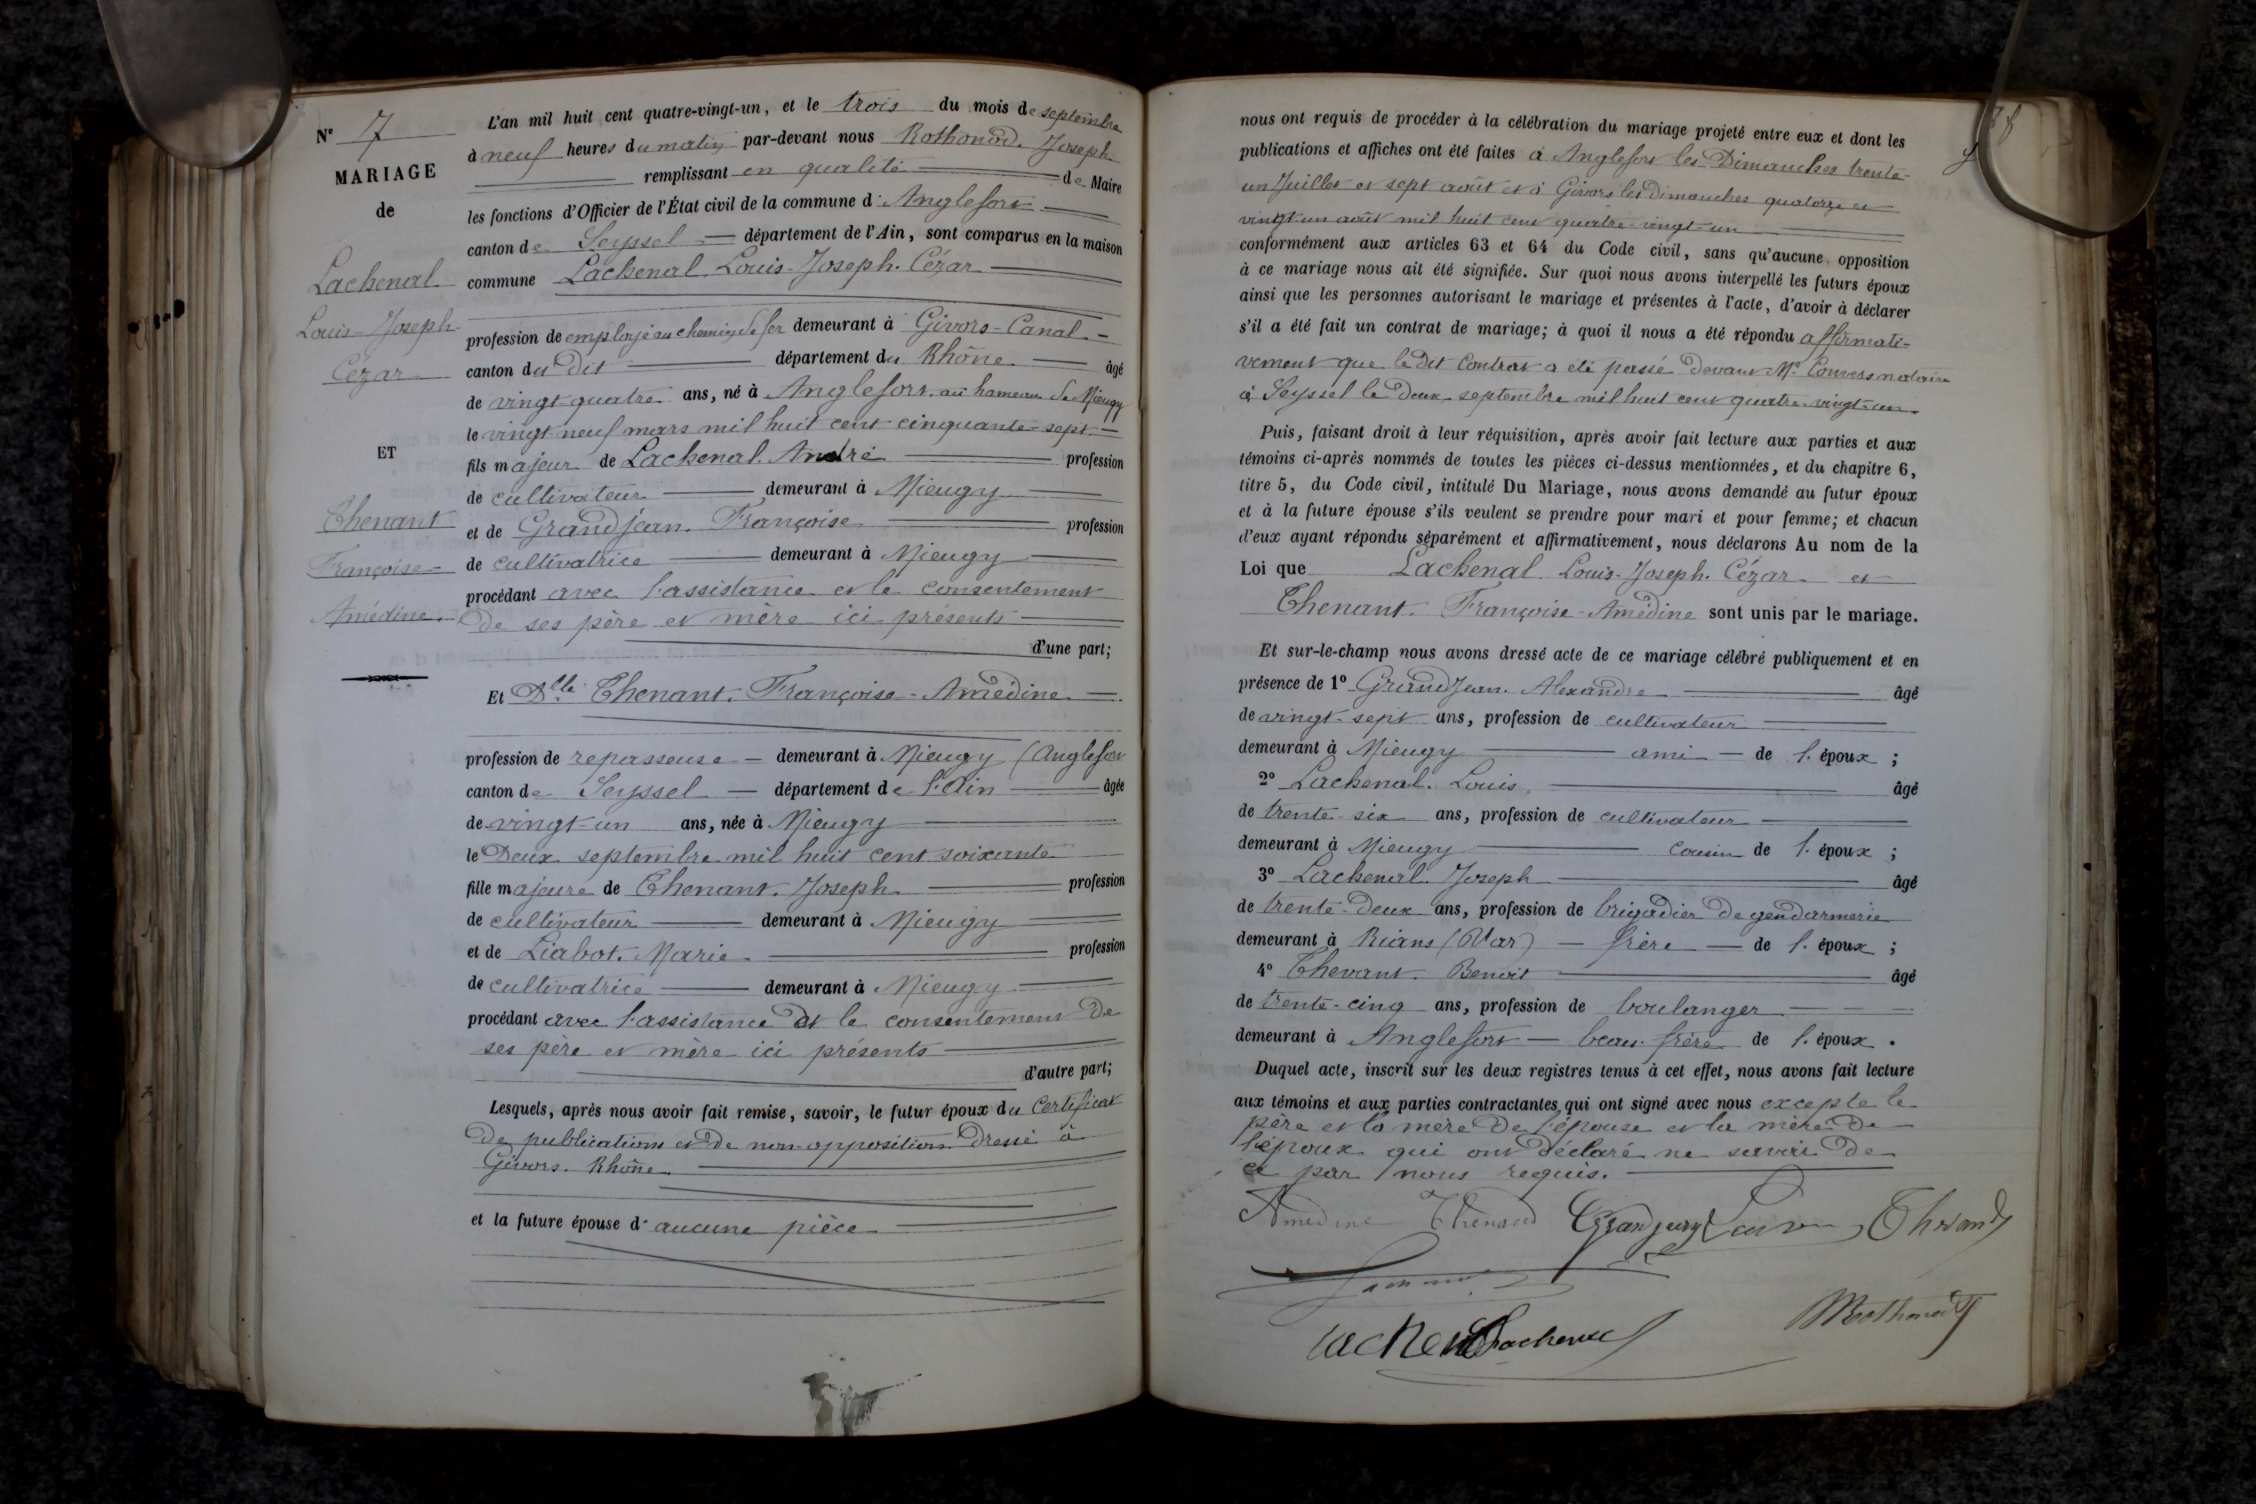 N° 7
MARIAGE
de
Lachenal
Louis-Joseph
Cézar
ET
Thenant
Françoise
Amédine
L'an mil huit cent quatre-vingt-un, et le trois du mois de septembre
à neuf heures du matin par-devant nous Rothonod. Joseph
remplissant en qualité de Maire
les fonctions d'Officier de l'État civil de la commune d'Anglefort
canton de Seyssel département de l'Ain, sont comparus en la maison
commune Lachenal Louis-Joseph. Cézar
profession de employé au chemin de fer demeurant à Givors-Canal
canton du dit département du Rhône âgé
de vingt quatre ans, né à Anglefort au hameau de Mieugy
le vingt neuf mars mil huit cent cinquante-sept
fils majeur de Lachenal. André profession
de cultivateur demeurant à Mieugy
et de Grandjean. Françoise profession
de cultivatrice demeurant à Mieugy
procédant avec l'assistance et le consentement
de ses père et mère ici présents
d'une part;
Et Dlle Thenant. Françoise-Amédine
profession de repasseuse demeurant à Mieugy (Anglefort
canton de Seyssel département de l'Ain âgée
de vingt-un ans, née à Mieugy
le deux septembre mil huit cent soixante
fille majeure de Thenant. Joseph profession
de cultivateur demeurant à Mieugy
et de Liabot. Marie profession
de cultivatrice demeurant à Mieugy
procédant avec l'assistance et le consentement de
ses père et mère ici présents
d'autre part;
Lesquels, après nous avoir fait remise, savoir, le futur époux du certificat
de publications et de non-opposition dressé à
Givors. Rhône
et la future épouse d'aucune pièce
nous ont requis de procéder à la célébration du mariage projeté entre eux et dont les
publications et affiches ont été faites à Anglefort les Dimanches trente-
un Juillet et sept août et à Givors les dimanches quatorze et
vingt-un août mil huit cent quatre-vingt-un
conformément aux articles 63 et 64 du Code civil, sans qu'aucune opposition
à ce mariage nous ait été signifiée. Sur quoi nous avons interpellé les futurs époux
ainsi que les personnes autorisant le mariage et présentes à l'acte, d'avoir à déclarer
s'il a été fait un contrat de mariage; à quoi il nous a été répondu affirmati-
vement que le dit contrat a été passé devant Me Convers notaire
à Seyssel le deux septembre mil huit cent quatre-vingt-un
Puis, faisant droit à leur réquisition, après avoir fait lecture aux parties et aux
témoins ci-après nommés de toutes les pièces ci-dessus mentionnées, et du chapitre 6,
titre 5, du Code civil, intitulé Du Mariage, nous avons demandé au futur époux
et à la future épouse s'ils veulent se prendre pour mari et pour femme; et chacun
d'eux ayant répondu séparément et affirmativement, nous déclarons Au nom de la
Loi que Lachenal Louis-Joseph. Cézar et
Thenant. Françoise-Amédine sont unis par le mariage.
Et sur-le-champ nous avons dressé acte de ce mariage célébré publiquement et en
présence de 1° Grandjean. Alexandre âgé
de vingt-sept ans, profession de cultivateur
demeurant à Mieugy ami de l'époux ;
2° Lachenal. Louis âgé
de trente six ans, profession de cultivateur
demeurant à Mieugy cousin de l'époux ;
3° Lachenal. Joseph âgé
de trente-deux ans, profession de brigadier de gendarmerie
demeurant à Rians (Var) frère de l'époux ;
4° Thevant. Benoit âgé
de trente-cinq ans, profession de boulanger
demeurant à Anglefort beau-frère de l'époux.
Duquel acte, inscrit sur les deux registres tenus à cet effet, nous avons fait lecture
aux témoins et aux parties contractantes qui ont signé avec nous excepté le
père et la mère de l'épouse et la mère de
l'époux qui ont déclaré ne savoir de
ce par nous requis.
Amédine Thenant Grandjean
Lachenal
Lachenal
Rothonod